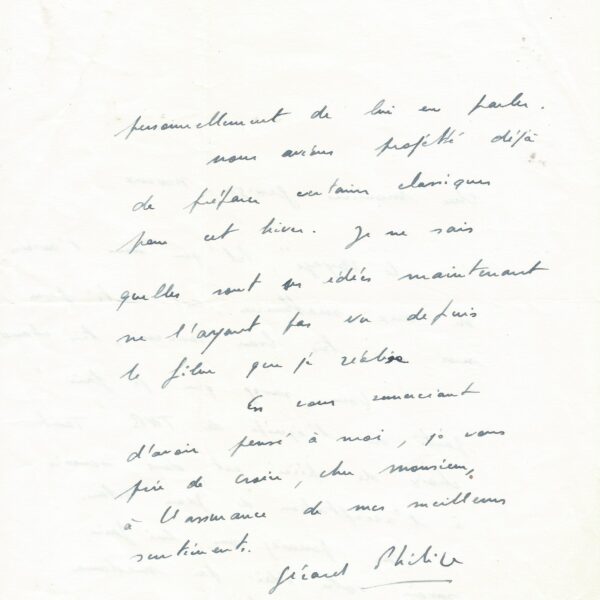 personnellement de lui en parler.
nous avions projeté déjà
de préparer certains classiques
pour cet hiver. Je ne sais
quelles sont ses idées maintenant
ne l'ayant pas vu depuis
le film que je réalise
En vous remerciant
d'avoir pensé à moi, je vous
prie de croire, cher monsieur,
à l'assurance de mes meilleurs
sentiments.
Gérard Philipe